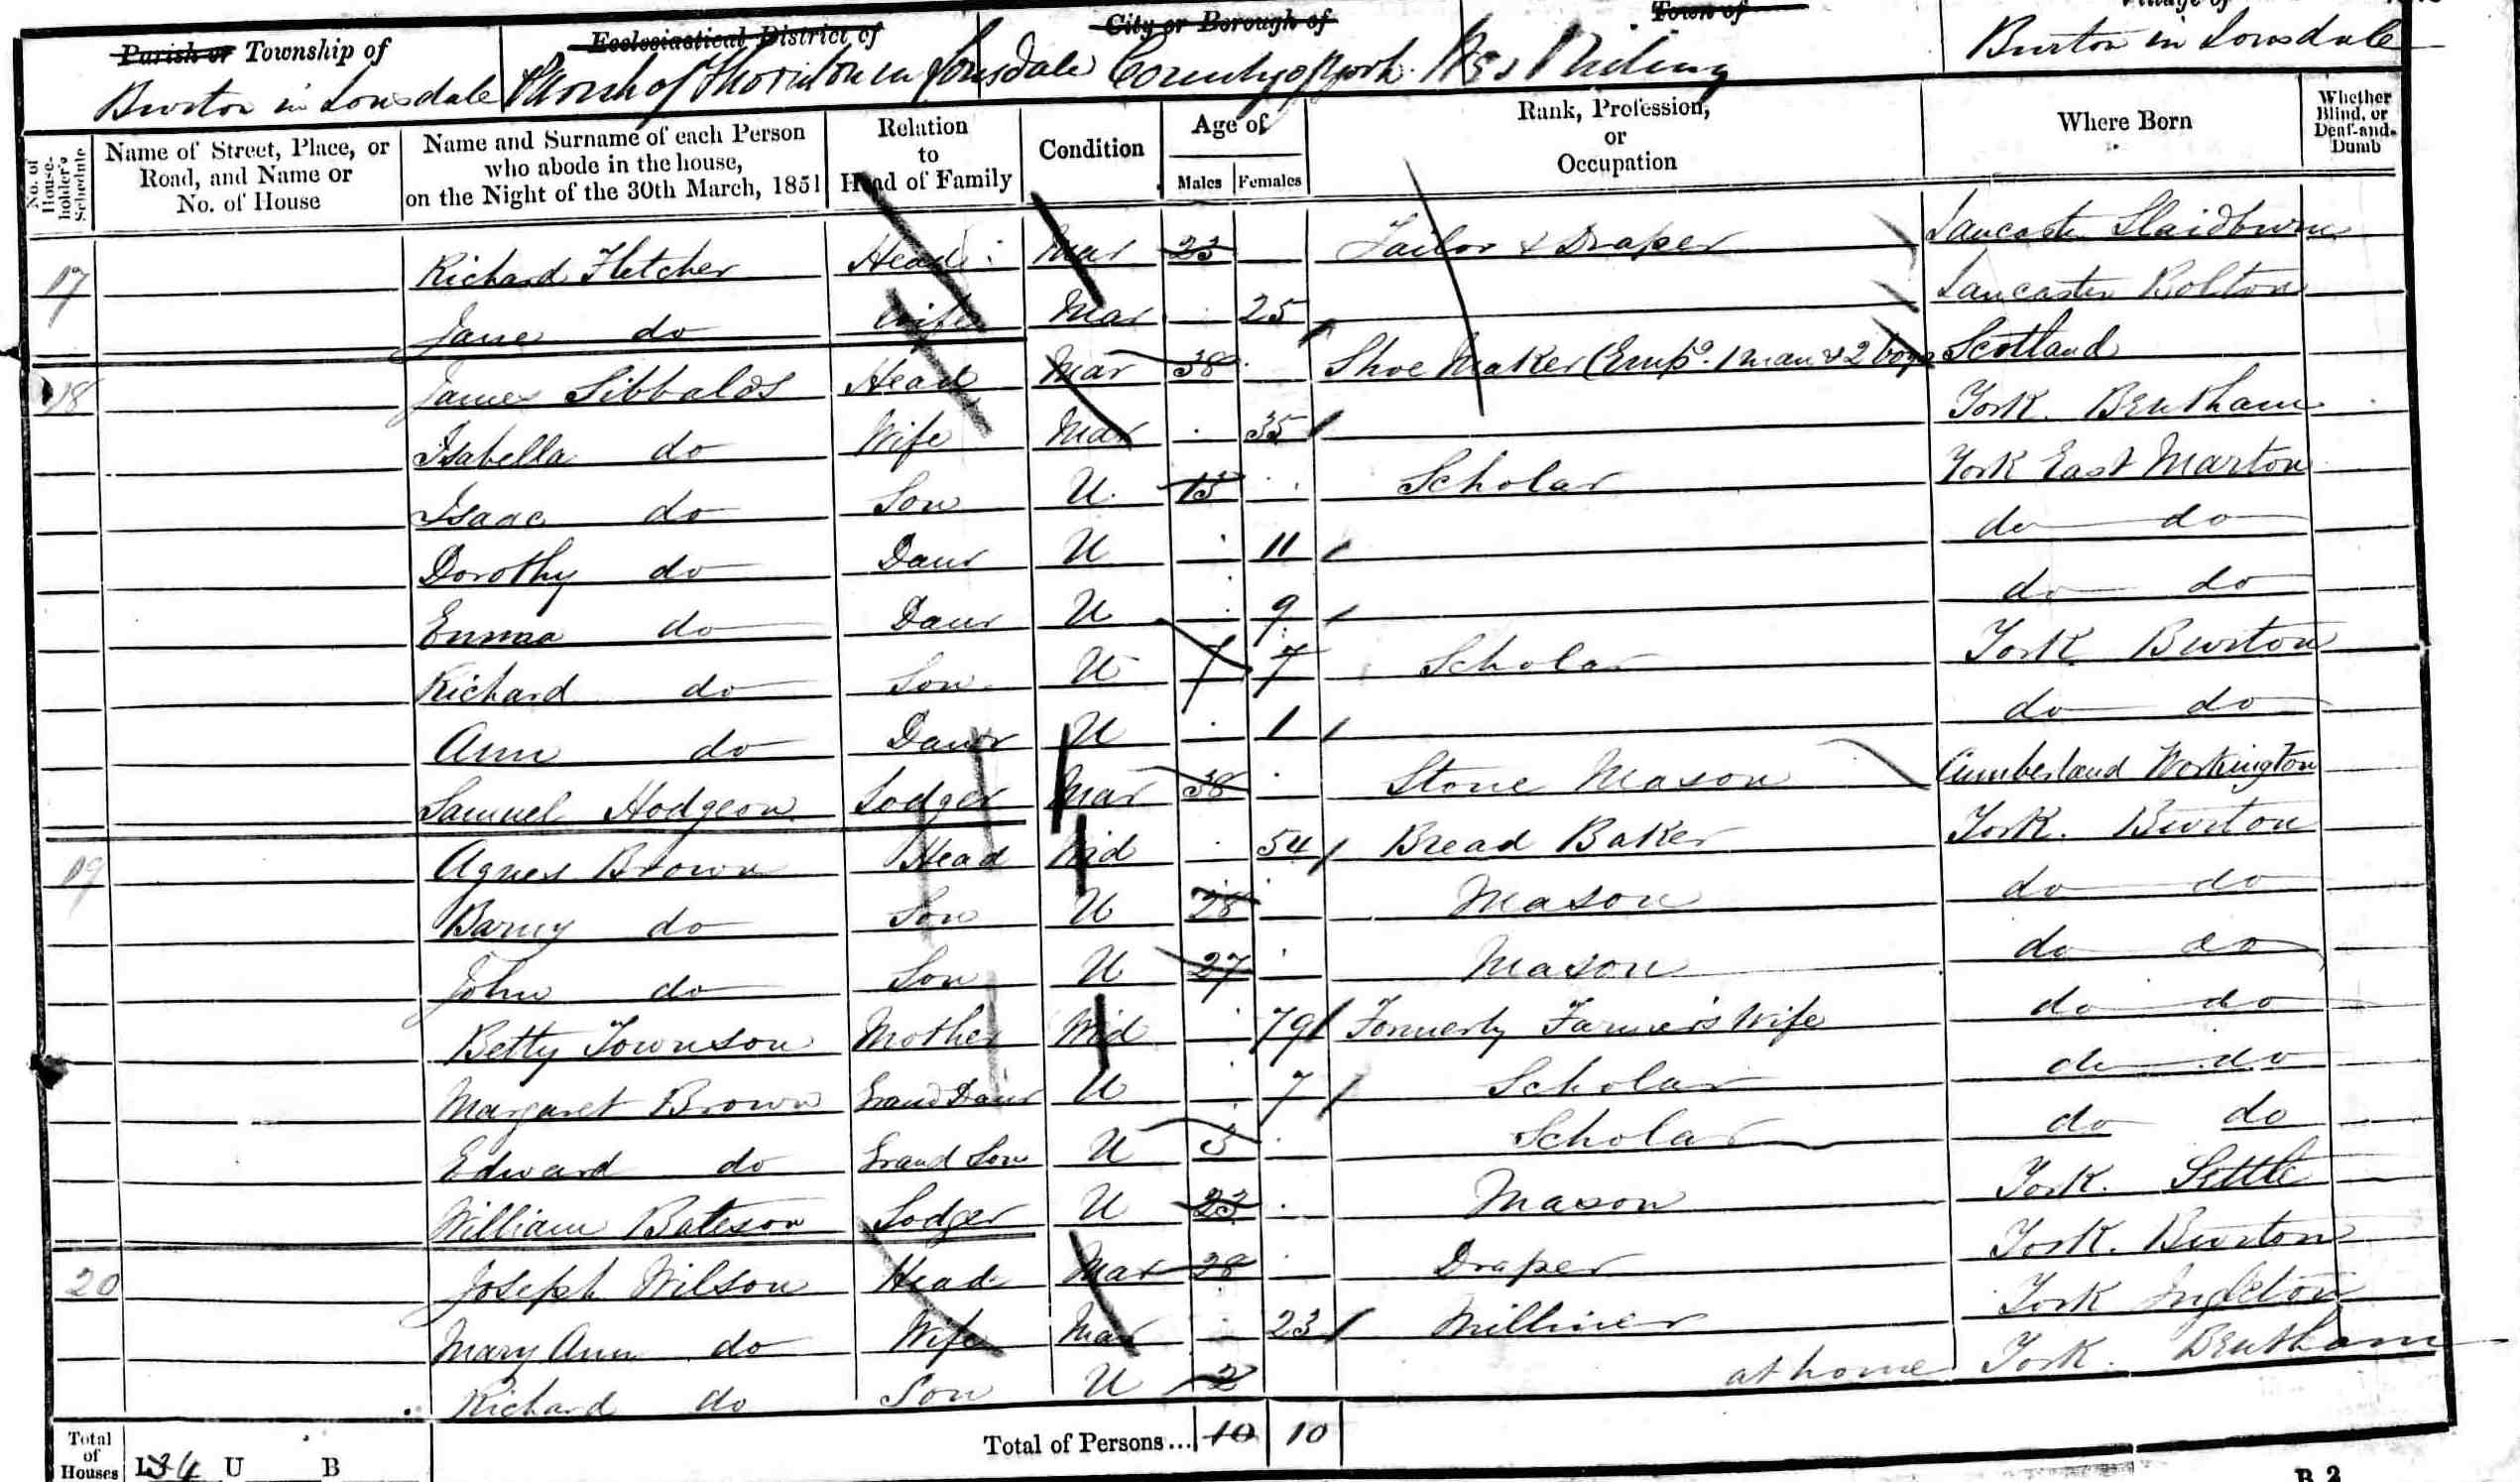 Parish or Township of
Ecclesiastical District of
City or Borough of
Town of
Village of
Burton in Lonsdale
Parish of Thornton in Lonsdale
County of York
West Riding
Burton in Lonsdale
No. of House-holder's Schedule
Name of Street, Place, or Road, and Name or No. of House
Name and Surname of each Person who abode in the house, on the Night of the 30th March, 1851
Relation to Head of Family
Condition
Age of
Males
Females
Rank, Profession, or Occupation
Where Born
Whether Blind, or Deaf-and-Dumb
17 Richard Fletcher Head Mar 23 Tailor & Draper Lancaster Slaidburn
Jane do Wife Mar 25 Lancaster Bolton
18 James Sibbalds Head Mar 38 Shoe Maker (Emp. 1 man & 2 boys Scotland
Isabella do Wife Mar 35 York. Bentham
Isaac do Son U. 13 Scholar York East Marton
Dorothy do Daur U 11 do do
Emma do Daur U 9 do do
Richard do Son U 7 7 Scholar York Burton
Ann do Daur U 1 do do
Samuel Hodgson Lodger Mar 38 Stone Mason Cumberland Workington
19 Agnes Brown Head Wid 54 Bread Baker York. Burton
Barny do Son U 28 Mason do do
John do Son U 27 Mason do do
Betty Townson Mother Wid 79 Formerly Farmer's Wife do do
Margaret Brown Grand Daur U 7 Scholar do do
Edward do Grand Son U 3 Scholar do do
William Bateson Lodger U 23 Mason York. Settle
20 Joseph Wilson Head Mar 28 Draper York. Burton
Mary Ann do Wife Mar 23 Milliner York Ingleton
Richard do Son U 2 at home York. Bentham
Total of Houses I 4 U B
Total of Persons... 10 10
B 2